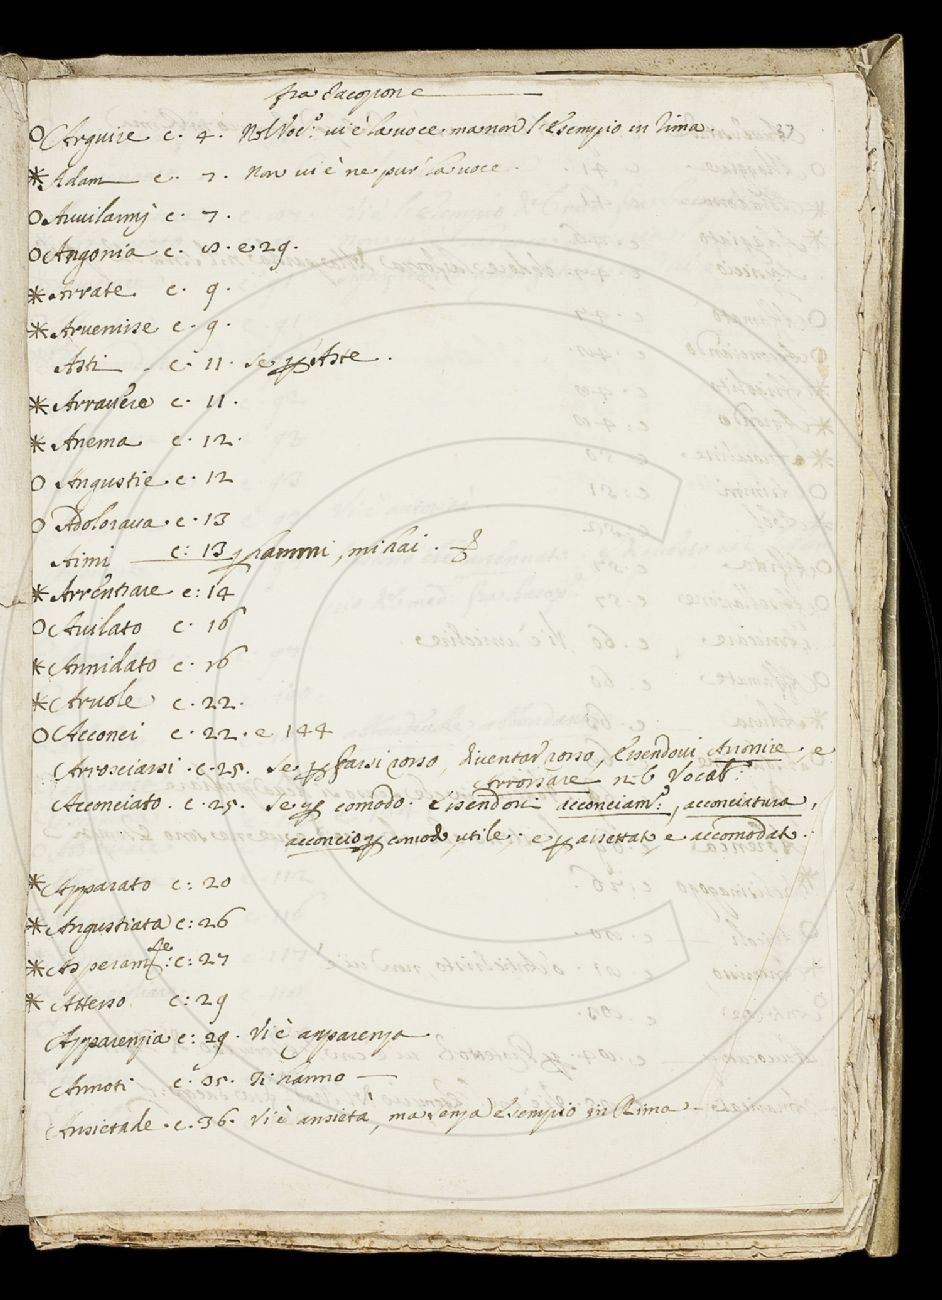 fra Jacopone
O Arguire c. 4. Nel Voc.º vi è la voce ma non l'Esempio in rima.
* Adam c. 7. Non vi è ne pur la voce.
O Avvilarmj c. 7.
O Angonia c. 8. e 29.
* Arrate c. 9.
* Arvenisse c. 9.
Asti c. 11. se p Aste.
* Arravere c. 11.
* Anema c. 12.
O Angustie c. 12
O Adolorava c. 13
Aimi c: 13 p hammi, mi hai.
* Arrentrare c: 14
O Avilato c. 16
* Annidato c. 16
* Arvole c. 22.
O Acconci c. 22. e 144
Arrosciarsi c. 25. se p farsi rosso, diventar rosso, essendovi Arrossire e
Arrossare nel Vocab.º
Acconciato c. 25. se p comodo. essendovi acconciam.º, acconciatura,
acconcio p comodo, utile: e p assettat. e accomodat.
* Apparato c: 20
* Angustiata c: 26
* Asperam.te: c: 27
* Atterso c: 29
Apparenzia c: 29. Vi è apparenza
Annoti c. 35. Ti hanno
Ansietade c. 36. Vi è ansietà, ma senza Esempio in Rima